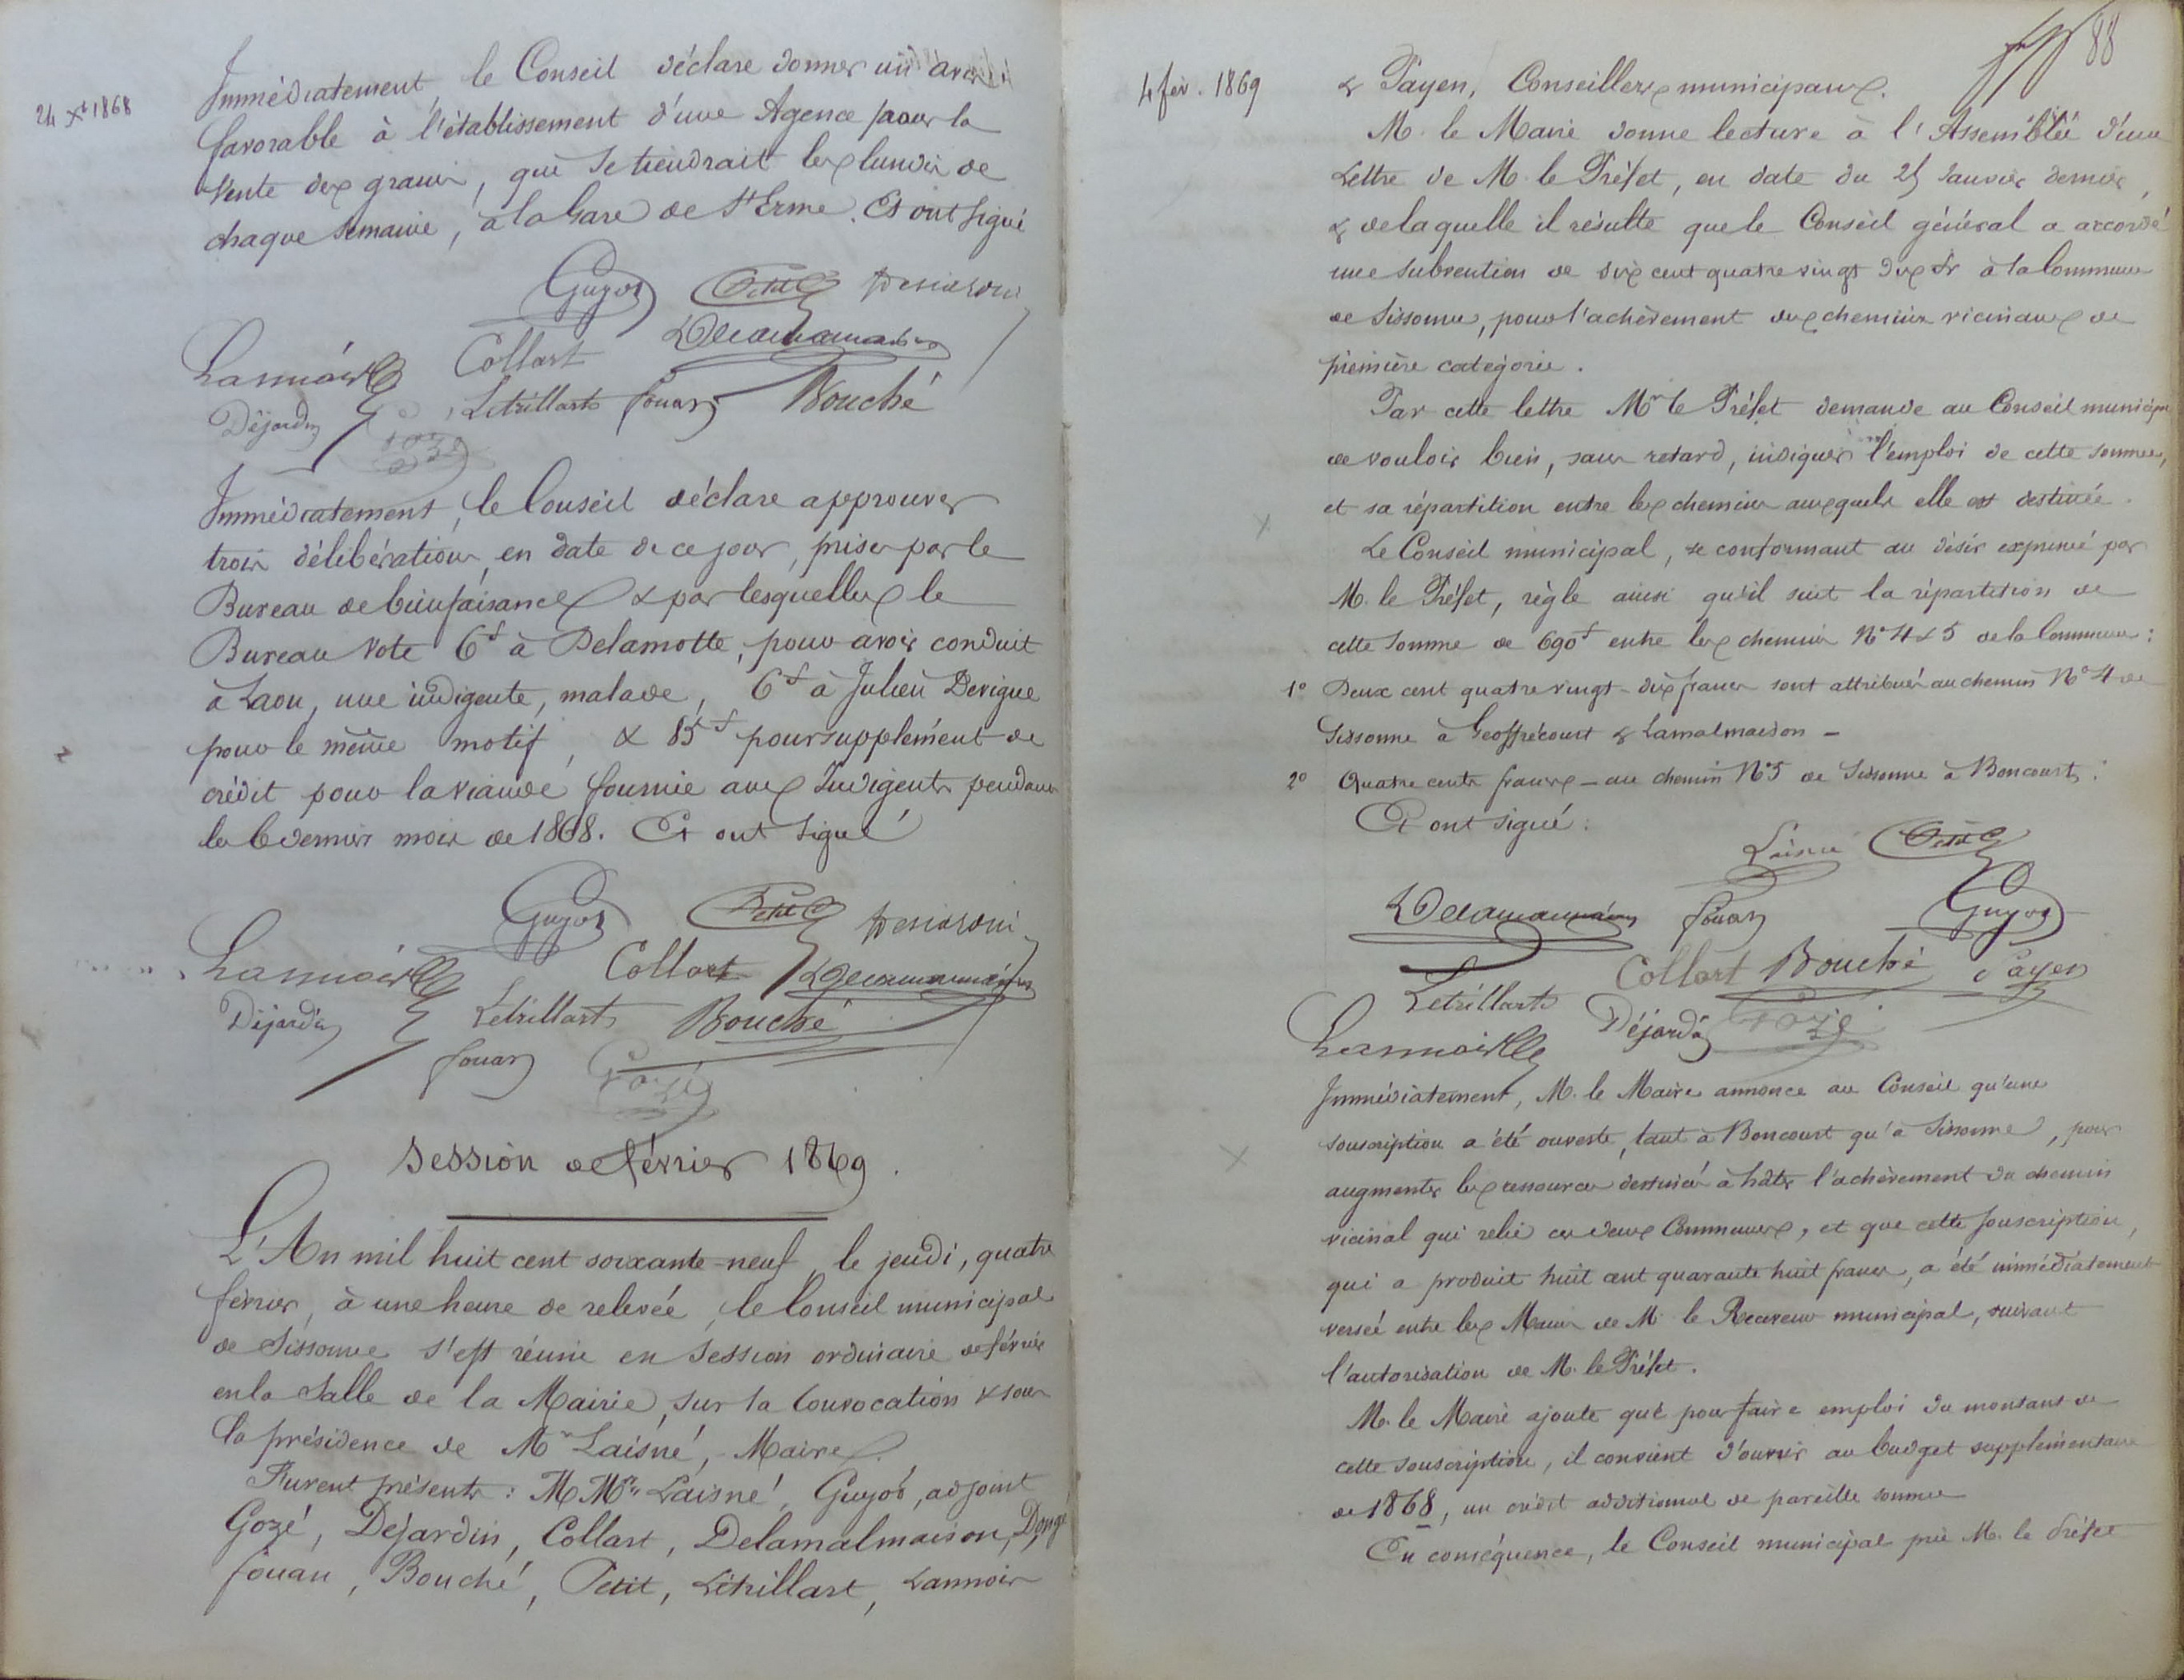 24 Xbre 1868
Immédiatement, le Conseil déclare donner un avis
favorable à l'établissement d'une Agence pour la
vente des grains, qui se tiendrait les lundis de
chaque semaine, à la Gare de St Erme. Et ont signé
Guyot Petit
Lannois Collart Delamalmaison
Déjardin Létrillart fouan Bouché
Gozé
Immédiatement, le Conseil déclare approuver
trois délibérations, en date de ce jour, prises par le
Bureau de bienfaisance & par lesquelles le
Bureau vote 6f à Delamotte, pour avoir conduit
à Laon, une indigente, malade, 6f à Julien Devigne
pour le même motif, & 85f pour supplément de
crédit pour la viande fournie aux Indigents pendant
les 6 derniers mois de 1868. Et ont signé
Guyot Petit
Lannois Collart Delamalmaison
Déjardin Létrillart Bouché
fouan Gozé
Session de février 1869.
L'An mil huit cent soixante-neuf, le jeudi, quatre
février, à une heure de relevée, le Conseil municipal
de Sissonne s'est réuni en session ordinaire de février
en la Salle de la Mairie, sur la Convocation & sous
la présidence de Mr Laisné, Maire.
Furent présents : M Mrs Laisné, Guyot, adjoint
Gozé, Dejardin, Collart, Delamalmaison, Dongé
fouan, Bouché, Petit, Létrillart, Lannois
88
4 fév. 1869
& Payen, Conseillers municipaux.
M. le Maire donne lecture à l'Assemblée d'une
Lettre de M. le Préfet, en date du 25 Janvier dernier,
& de laquelle il résulte que le Conseil général a accordé
une subvention de six cent quatre vingt dix fr à la Commune
de Sissonne, pour l'achèvement des chemins vicinaux de
première catégorie.
Par cette lettre Mr le Préfet demande au Conseil municipal
de vouloir bien, sans retard, indiquer l'emploi de cette somme,
et sa répartition entre les chemins auxquels elle est destinée.
Le Conseil municipal, se conformant au désir exprimé par
M. le Préfet, règle ainsi qu'il suit la répartition de
cette somme de 690f entre les chemins No 4 & 5 de la Commune :
1o Deux cent quatre vingt-dix francs sont attribués au chemin No 4 de
Sissonne à Geoffrécourt & Lamalmaison -
2o Quatre cents francs - au chemin No 5 de Sissonne à Boncourt.
Et ont signé :
Laisné Petit
Delamalmaison fouan Guyot
Collart Bouché Payen
Létrillart Déjardin Gozé
Lannois
Immédiatement, M. le Maire annonce au Conseil qu'une
souscription a été ouverte, tant à Boncourt qu'à Sissonne, pour
augmenter les ressources destinées à hâter l'achèvement du chemin
vicinal qui relie ces deux Communes, et que cette souscription,
qui a produit huit cent quarante huit francs, a été immédiatement
versée entre les Mains de M. le Receveur municipal, suivant
l'autorisation de M. le Préfet.
M. le Maire ajoute que pour faire emploi du montant de
cette souscription, il convient d'ouvrir au budget supplémentaire
de 1868, un crédit additionnel de pareille somme
En conséquence, le Conseil municipal prie M. le Préfet